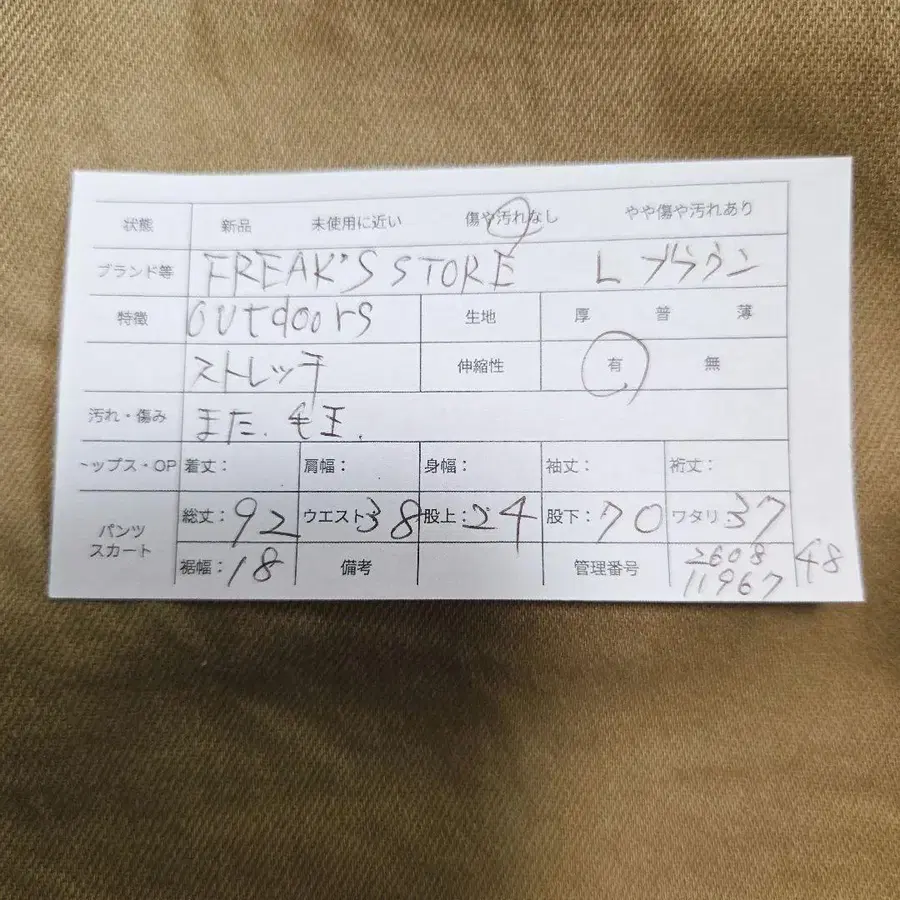 状態 新品 未使用に近い 傷や汚れなし やや傷や汚れあり
ブランド等 FREAK'S STORE L ブラウン
特徴 outdoors 生地 厚 普 薄
ストレッチ 伸縮性 有 無
汚れ・傷み また、毛玉.
トップス・OP 着丈: 肩幅: 身幅: 袖丈: 裄丈:
パンツ スカート 総丈:92 ウエスト:38 股上:24 股下:70 ワタリ:37
裾幅:18 備考 管理番号 2608 11967 48